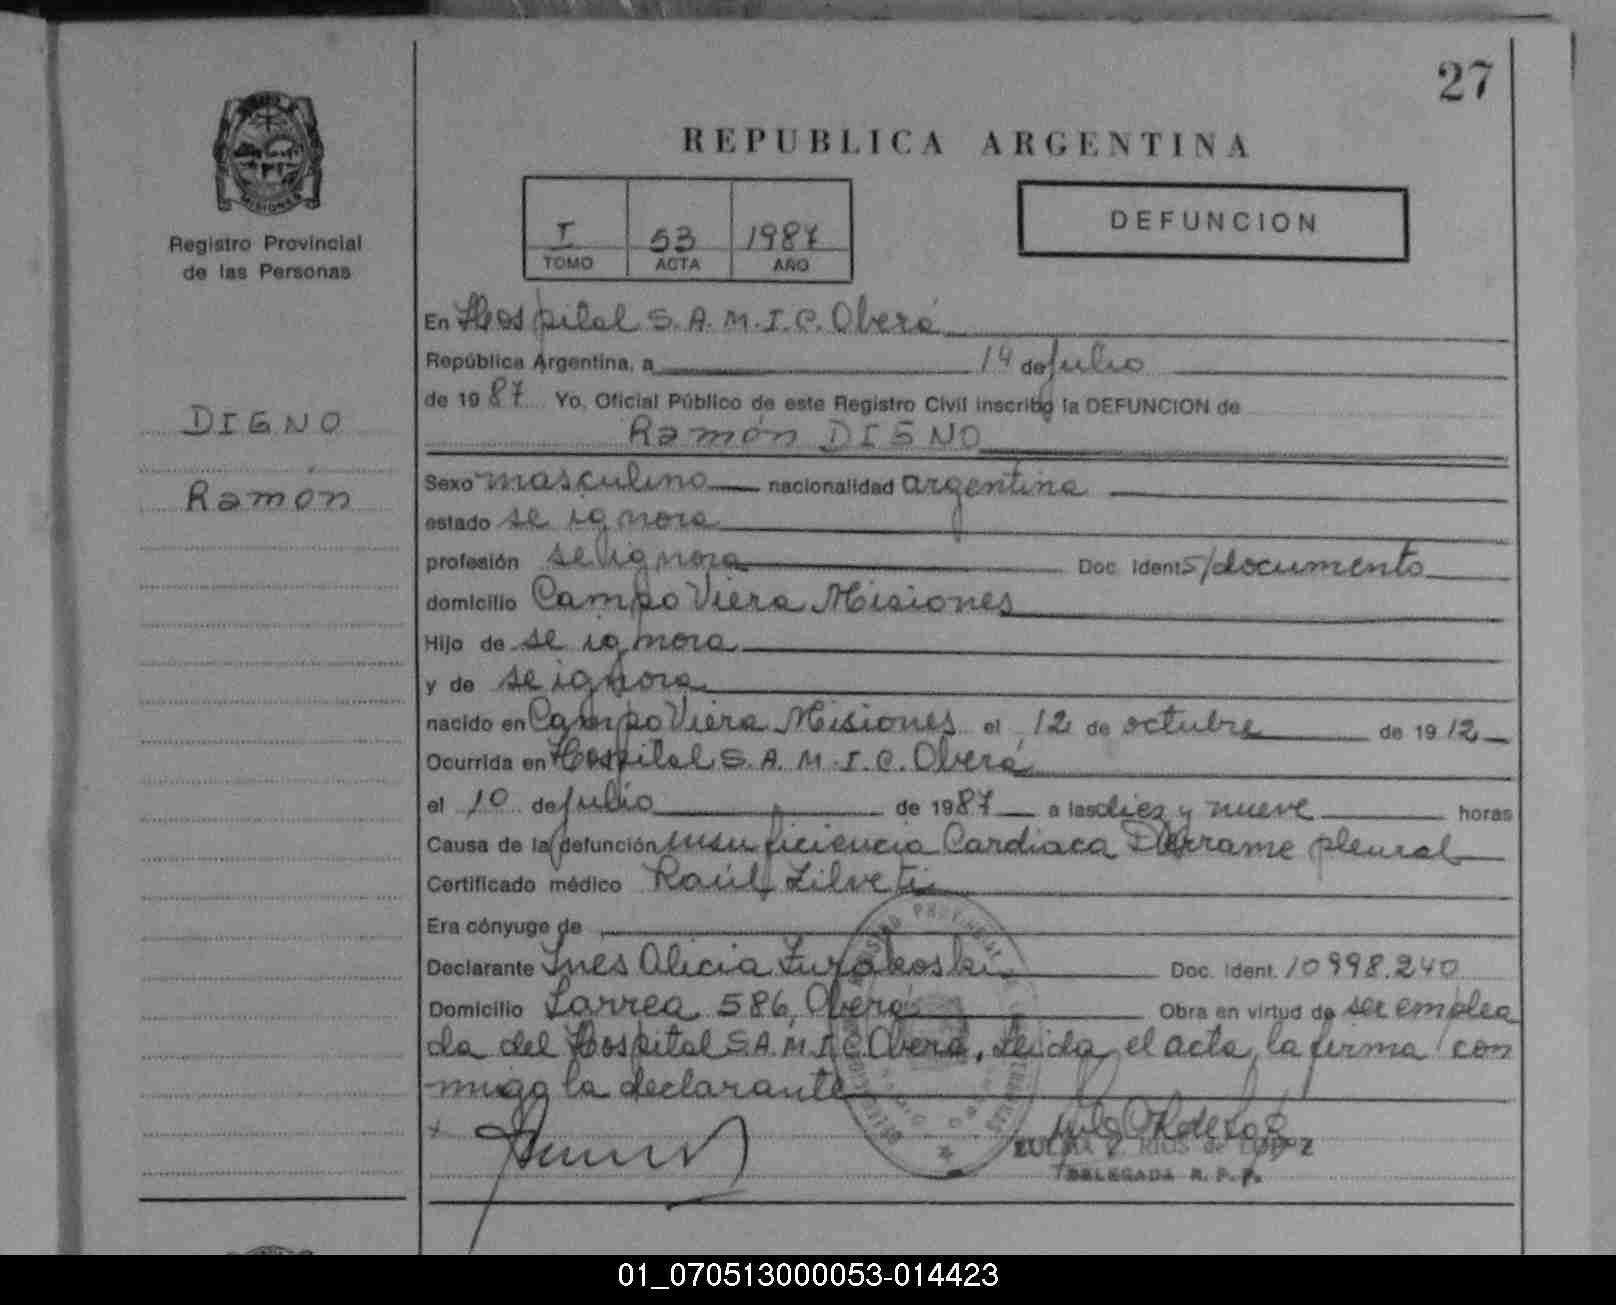 27
REPUBLICA ARGENTINA
MISIONES
Registro Provincial
de las Personas
I 53 1987
TOMO ACTA AÑO
DEFUNCION
DIGNO
Ramón
En Hospital S.A.M.I.C. Oberá
República Argentina, a 14 de julio
de 1987 Yo, Oficial Público de este Registro Civil inscribo la DEFUNCION de
Ramón DIGNO
Sexo masculino nacionalidad argentina
estado se ignora
profesión se ignora Doc. Ident. S/documento
domicilio Campo Viera Misiones
Hijo de se ignora
y de se ignora
nacido en Campo Viera Misiones el 12 de octubre de 1912
Ocurrida en Hospital S.A.M.I.C. Oberá
el 10 de julio de 1987 a las diez y nueve horas
Causa de la defunción insuficiencia Cardiaca Derrame pleural
Certificado médico Raúl Zilveti
Era cónyuge de
Declarante Ines Alicia Zurakoski Doc. Ident. 10998.240
Domicilio Larrea 586, Oberá Obra en virtud de ser emplea
da del Hospital S.A.M.I.C. Oberá. Leida el acta, la firma con
migo la declarante
DELEGADA R. P. P.
01_070513000053-014423